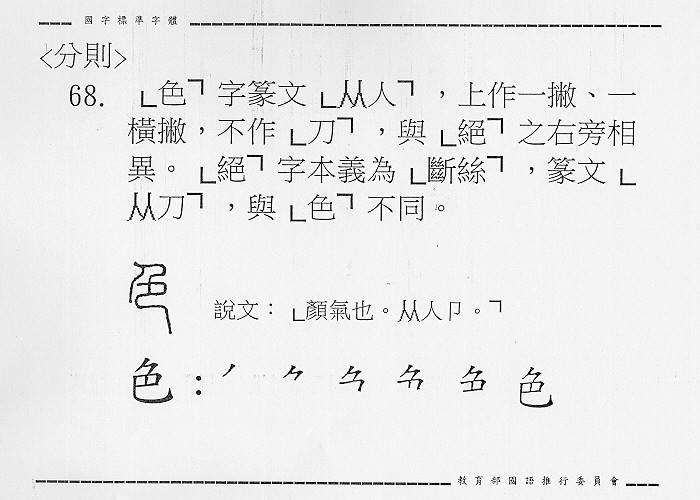 國字標準字體
<分則>
68. 「色」字篆文「从人」，上作一撇、一
橫撇，不作「刀」，與「絕」之右旁相
異。「絕」字本義為「斷絲」，篆文「
从刀」，與「色」不同。
色
說文：「顏氣也。从人卩。」
色：
色
教育部國語推行委員會